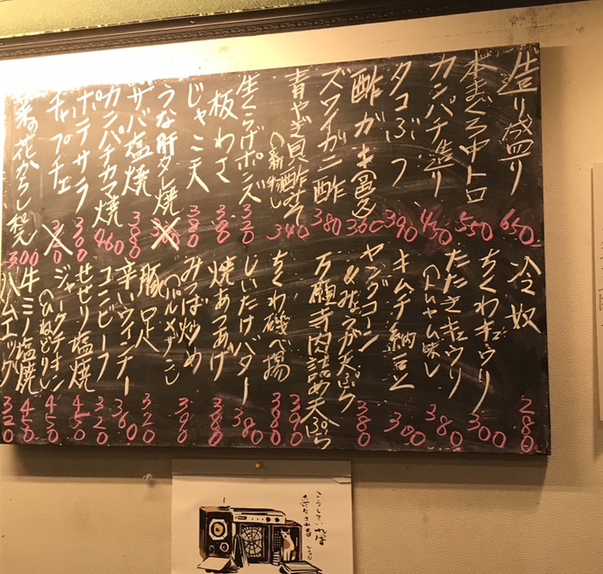 造り盛り 650
本まぐろ中トロ 550
カンパチ造り 450
タコぶつ 390
酢ガキ 360
ズワイガニ酢 380
青やぎ貝酢みそ 340
生くらげポンズ 320
板わさ 380
じゃこ天 380
うな肝タレ焼
サバ塩焼 380
カンパチカマ焼 460
ポテサラ 300
チャプチェ
菜の花からし和え 300
冷奴 280
ちくわキュウリ 300
たたきキュウリ
(トムヤム味) 380
キムチ納豆 300
ヤングコーン
&みょうが天ぷら 380
万願寺肉詰め天ぷら 390
ちくわ磯べ揚 380
しいたけバター 380
焼あつあげ 380
みつば炒め 390
豚足 320
辛いウインナー 360
コンビーフ 320
せせり塩焼 450
ジャークチキン 450
牛ミノ塩焼 450
ハムエッグ 320
こうして